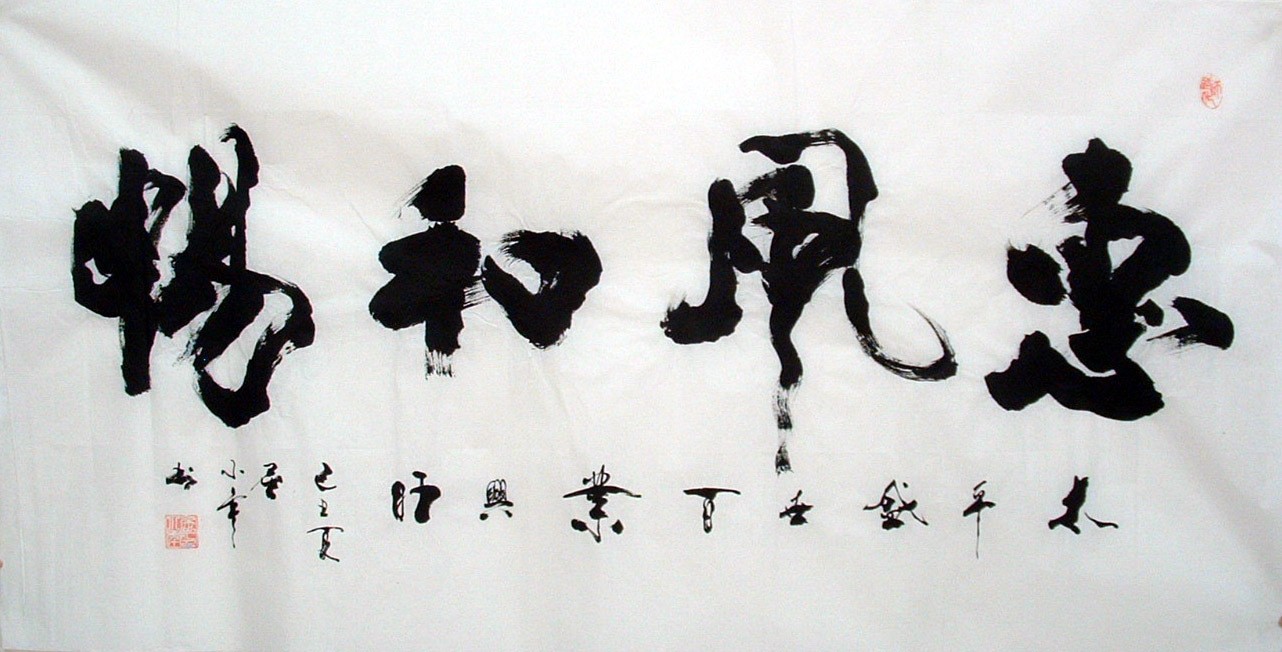 惠風和暢
泰平盛世百業興旺
己丑夏
小
書